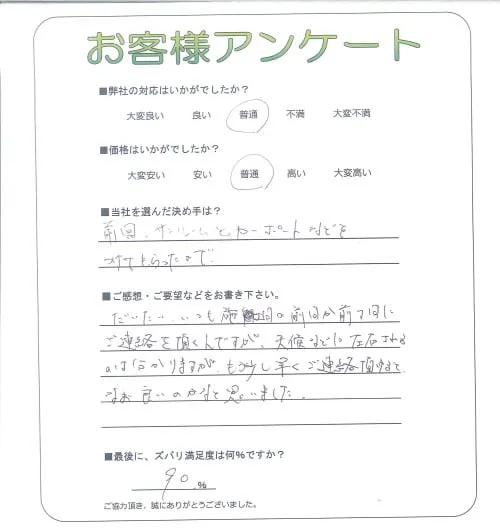 お客様アンケート
■弊社の対応はいかがでしたか？
大変良い 良い 普通 不満 大変不満
■価格はいかがでしたか？
大変安い 安い 普通 高い 大変高い
■当社を選んだ決め手は？
前回、サンルームとカーポートなどを
つけてもらったので
■ご感想・ご要望などをお書き下さい。
だいたい、いつも の前日か前々日に
ご連絡を頂くんですが、天候などに左右される
のは分かりますが、もう少し早くご連絡頂けると
なお良いのかなと思いました。
■最後に、ズバリ満足度は何%ですか？
90 %
ご協力頂き、誠にありがとうございました。